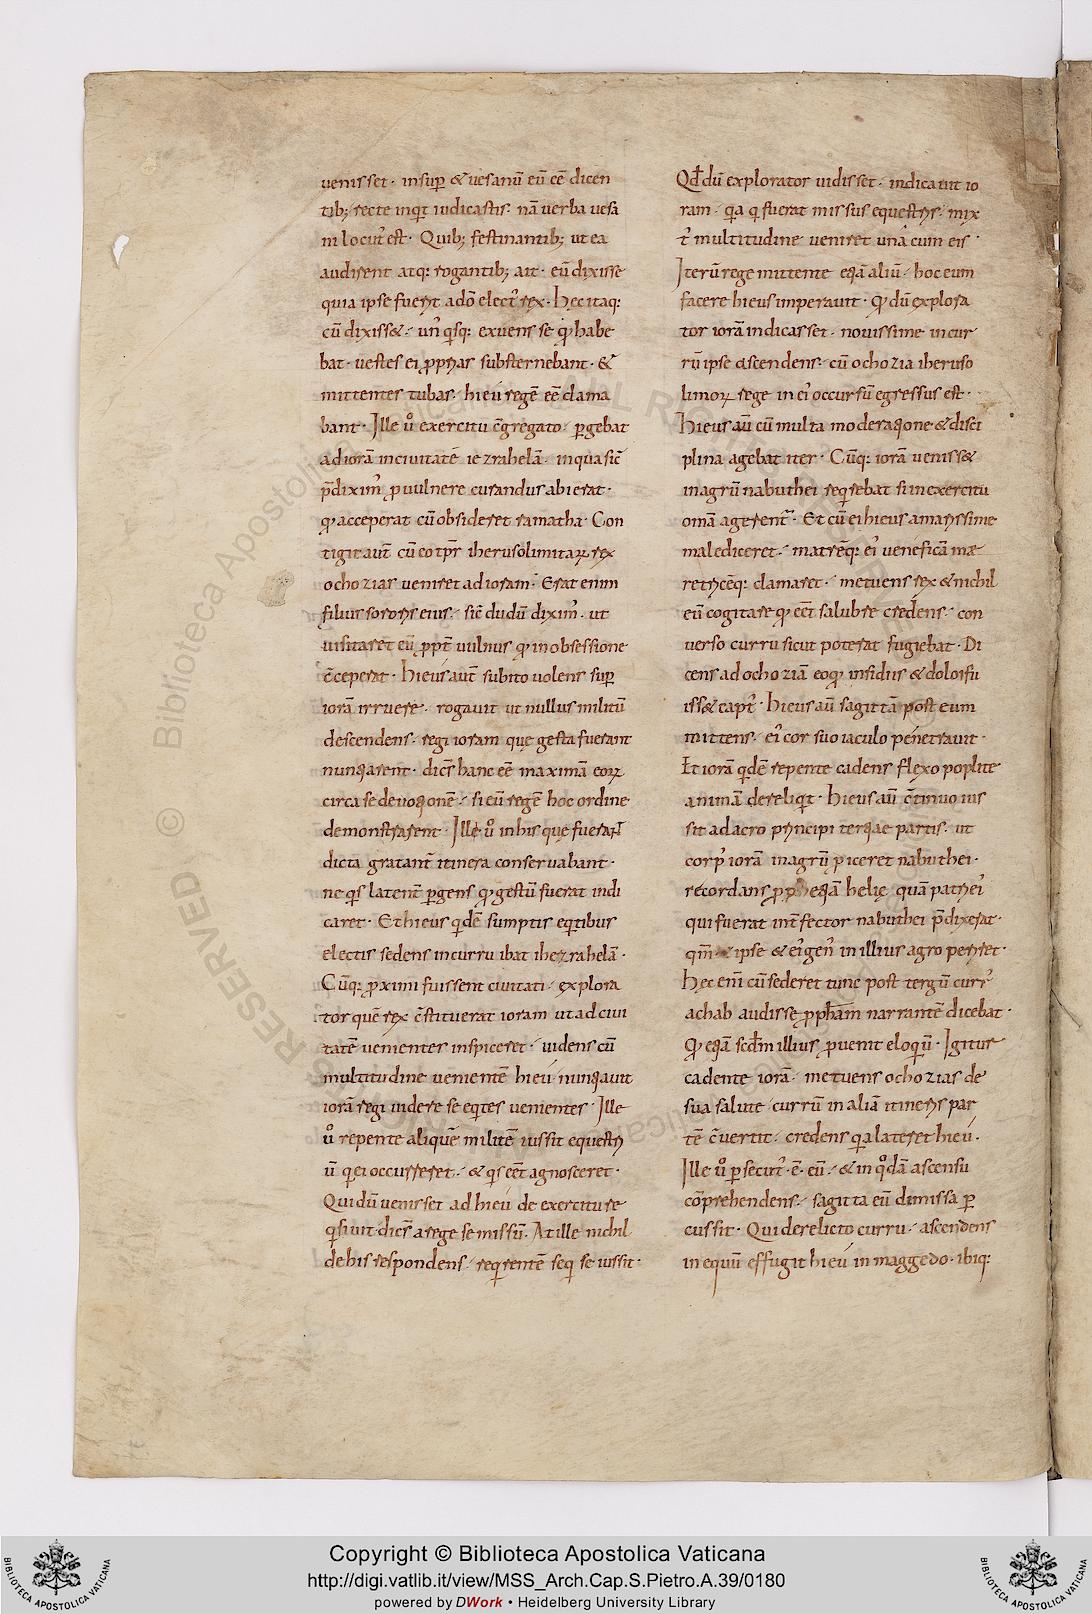 venisset · insup̄ & vesanū eū eē dicen
tib; recte inq̇t iudicastis · nā verba vesa
ni locut᷒ est · Quib; festinantib; ut ea
audirent atq: rogantib; ait · eū dixisse
quia ipse fuerit a dō elect᷒ rex · Hęc itaq:
cū dixiss& · un᷒ q̇sq: exuens se qđ habe
bat · vestes ei ꝓprias substernebant · &
mittentes tubas · hieú regē eē clama
bant · Ille u͛o exercitu c̄gregato · ꝑgebat
ad iorā in civitatē iezrahelā · in qua sic̄
p̄dixim᷒ ꝓ vulnere curandus abierat ·
qđ acceperat cū obsideret ramatha · Con
tigit aut̄ cū eo tp̄r iherusolimitaꝝ rex
ochozias veniret ad ioram · Erat enim
filius sororis eius · sic̄ dudū dixim᷒ · ut
visitaret eū ꝓpt̄ vulnus qđ in obsessione
c̄ceperat · Hieus aut̄ subito volens sup̄
iorā irruere · rogavit ut nullus militū
descendens · regi ioram quę gesta fuerant
nunciarent · dicēs hanc eē maximā eoꝝ
circa se devotionē · si eū regē hoc ordine
demonstrarent · Ille u͛o in his quę fuerant
dicta gratant᷒ itinera conservabant ·
ne q̇s latent᷒ ꝑgens qđ gestū fuerat indi
caret · Et hieus q̇dē sumptis eq̇tibus
electis sedens in curru ibat ihezrahelā ·
Cūq: ꝓximi fuissent civitati · explora
tor quē rex c̄stituerat ioram ut ad civi
tatē venientes inspiceret · videns cū
multitudine venientē hieú nunciavit
iorā regi videre se eq̇tes venientes · Ille
u͛o repente aliquē militē iussit equestri
ū q̇ ei occurreret · & q̇s eēt agnosceret ·
Qui dū venisset ad hieú de exercitu re
q̇sivit dicēs a rege se missū · At ille nichil
de his respondens · req̇rentē seq̇ se iussit ·
Qđ dū explorator vidisset · indicavit io
ram · q̇a q̇ fuerat missus equestris · mix
t᷒ multitudine veniret unā cum eis ·
Iterū rege mittente etiā aliū · hoc eum
facere hieus imperavit · Qđ dū explora
tor iorā indicasset · novissime in cur
rū ipse ascendens · cū ochozia iheruso
limoꝝ rege in ei᷒ occursū egressus est ·
Hieus aū cū multa moderatione & disci
plina agebat iter · Cūq: iorā veniss&
in agrū nabuthei req̇rebat si in exercitu
om̄a agerent᷒ · Et cū ei hieus amarissime
malediceret · matrēq: ei᷒ veneficā me
retricēq: clamaret · metuens rex & nichil
eū cogitare qđ eēt salubre credens · con
verso curru sicut poterat fugiebat · Di
cens ad ochoziā eo qđ insidiis & dolo fu
iss& capt᷒ · Hieus aū sagittā post eum
mittens · ei᷒ cor suo iaculo penetravit ·
Et iorā q̇dē repente cadens flexo poplite
animā dereliq̇t · Hieus aū c̄tinuo ius
sit adacro principi terciae partis · ut
corp᷒ iorā in agrū ꝓiceret nabuthei ·
recordans ꝓphetiā helię quā patri ei᷒
qui fuerat int̄fector nabuthei p̄dixerat ·
qm̄ · ipse & ei᷒ gen᷒ in illius agro periret ·
Hęc eni cū sederet tunc post tergū curr᷒
achab audisse ꝓph̄am narrantē dicebat ·
Qđ etiā scđm illius ꝓvenit eloq̇ū · Igitur
cadente iorā · metuens ochozias de
sua salute currū in aliā itineris par
tē c̄vertit · credens q̇a lateret hieú ·
Ille u͛o ꝑsecut᷒ · ē · eū · & in q̊dā ascensu
cōprehendens · sagitta eū dimissa ꝑ
cussit · Qui derelicto curru · ascendens
in equū effugit hieú in maggedo · ibiq:
© Biblioteca Apostolica Vaticana ALL RIGHTS RESERVED
Copyright © Biblioteca Apostolica Vaticana
http://digi.vatlib.it/view/MSS_Arch.Cap.S.Pietro.A.39/0180
powered by DWork • Heidelberg University Library
BIBLIOTECA APOSTOLICA VATICANA
BIBLIOTECA APOSTOLICA VATICANA